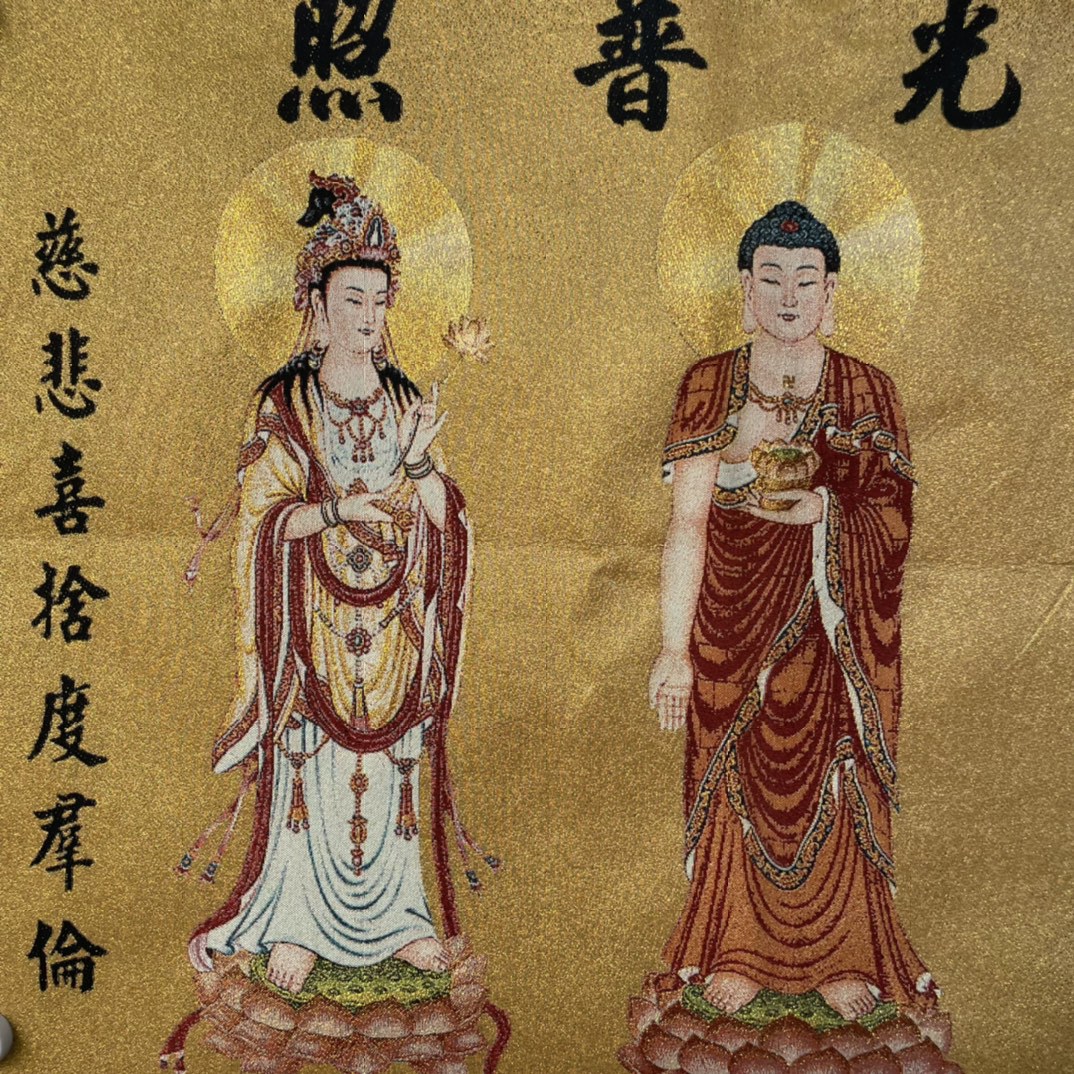 光普照
慈悲喜捨度羣倫